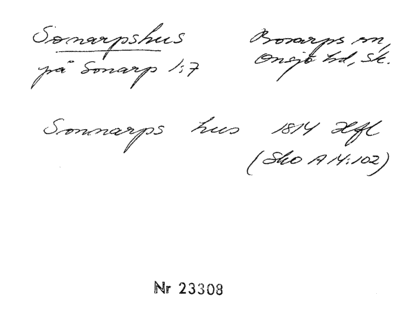 Sonarpshus
Bosarps sn,
på Sonarp 1:7
Onsjö hd, Sk.
Sonnarps hus 1814 Hfl
(Sko A IV:102)
Nr 23308